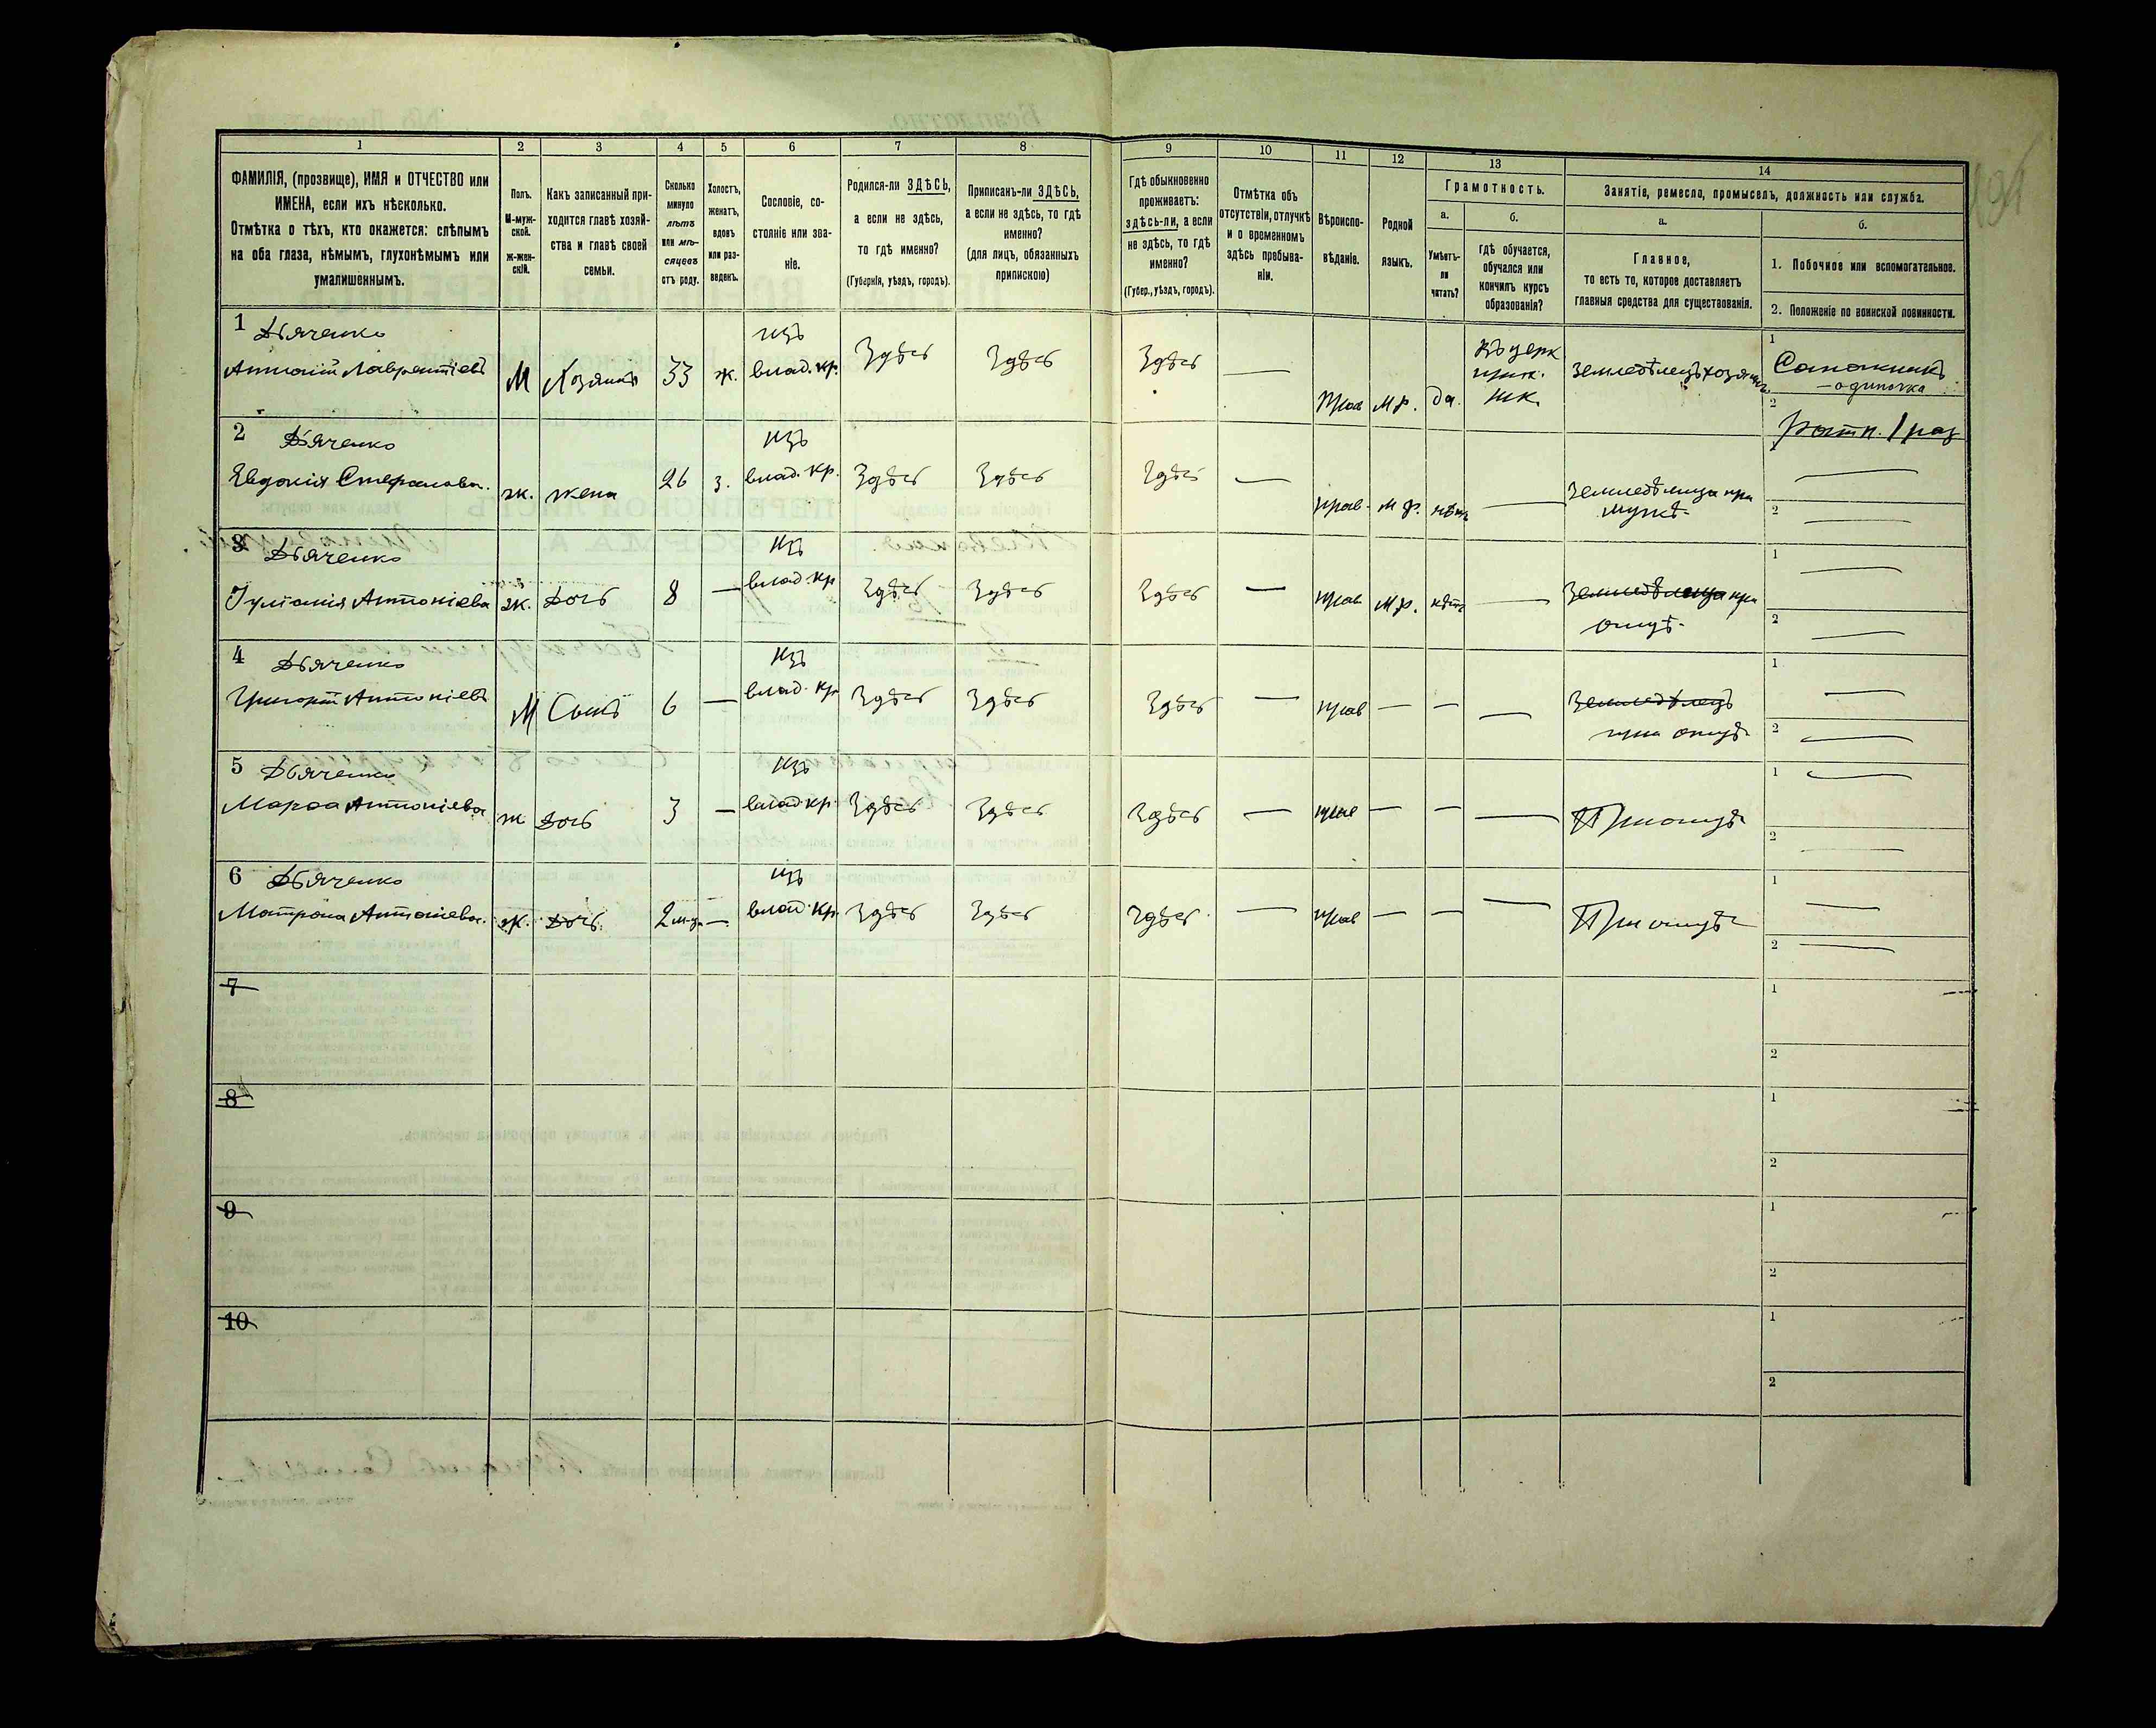 1
2
3
4
5
6
7
8
9
10
11
12
13
14
ФАМИЛІЯ, (прозвище), ИМЯ и ОТЧЕСТВО или
ИМЕНА, если ихъ нѣсколько.
Отмѣтка о тѣхъ, кто окажется: слѣпымъ
на оба глаза, нѣмымъ, глухонѣмымъ или
умалишеннымъ.
Полъ.
М-муж-
ской.
ж-жен-
скій.
Какъ записанный при-
ходится главѣ хозяй-
ства и главѣ своей
семьи.
Сколько
минуло
лѣтъ
или мѣ-
сяцевъ
отъ роду.
Холостъ,
женатъ,
вдовъ
или раз-
веденъ.
Сословіе, со-
стояніе или зва-
ніе.
Родился-ли ЗДѢСЬ,
а если не здѣсь,
то гдѣ именно?
(Губернія, уѣздъ, городъ).
Приписанъ-ли ЗДѢСЬ,
а если не здѣсь, то гдѣ
именно?
(для лицъ, обязанныхъ
припискою)
Гдѣ обыкновенно
проживаетъ:
здѣсь-ли, а если
не здѣсь, то гдѣ
именно?
(Губер., уѣздъ, городъ).
Отмѣтка объ
отсутствіи, отлучкѣ
и о временномъ
здѣсь пребыва-
ніи.
Вѣроиспо-
вѣданіе.
Родной
языкъ.
Грамотность.
а.
Умѣетъ-
ли
читать?
б.
Гдѣ обучается,
обучался или
кончилъ курсъ
образованія?
Занятіе, ремесло, промыселъ, должность или служба.
а.
Главное,
то есть то, которое доставляетъ
главныя средства для существованія.
б.
1. Побочное или вспомогательное.
2. Положеніе по воинской повинности.
1 Дьяченко
Антоній Лаврентіевъ
М
Хозяинъ
33
ж.
изъ
влад. кр.
Здѣсь
Здѣсь
Здѣсь
—
Прав
М.р.
да.
въ церк
прих.
шк.
Земледѣлецъ хозяинъ
1
Сапожникъ
— одиночка
2
Ратн. 1 раз
2 Дьяченко
Евдокія Стефанова.
ж.
жена
26
з.
изъ
влад. кр.
Здѣсь
Здѣсь
Здѣсь
—
прав.
М.р.
нѣтъ
—
Земледѣлица при
мужѣ
2
3 Дьяченко
Іуліанія Антоніева
ж.
Дочь
8
—
изъ
влад. кр
Здѣсь
Здѣсь
Здѣсь
—
прав
М.р.
нѣтъ
—
Земледѣлица при
отцѣ
1
2
4 Дьяченко
Григорій Антоніевъ
М
Сынъ
6
—
изъ
влад. кр
Здѣсь
Здѣсь
Здѣсь
—
прав
—
—
—
Земледѣлецъ
при отцѣ
1
2
5 Дьяченко
Марфа Антоніева
ж
Дочь
3
—
изъ
влад кр.
Здѣсь
Здѣсь
Здѣсь
—
прав
—
—
—
При отцѣ
1
2
6 Дьяченко
Матрона Антоніева.
ж.
Дочь
2 м-ца
—
изъ
влад. кр.
Здѣсь
Здѣсь
Здѣсь.
—
прав
—
—
—
При отцѣ
1
2
7
1
2
8
1
2
9
1
2
10
1
2